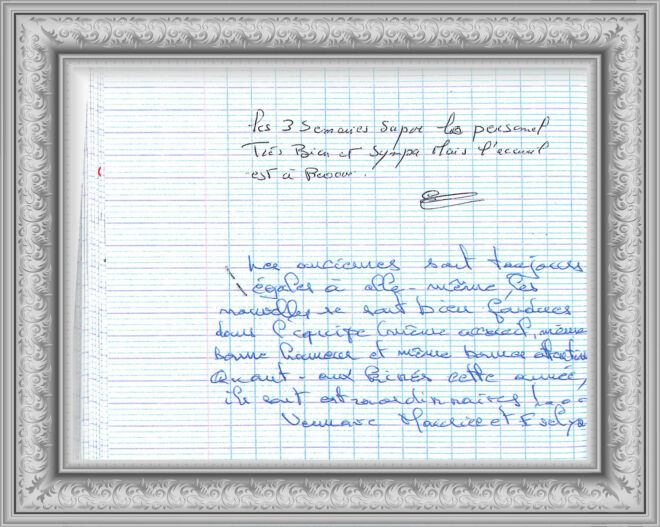 Les 3 Semaines Super les personel
Très Bien et Sympa Mais l'accueil
est à Revoir.
Les anciennes sont toujours
égales à elle-même, les
nouvelles se sont bien fondues
dans l'équipe (même accueil, même
bonne humeur et même bonne attention
Quant-aux kinés cette année,
ils sont extraordinnaires !...
Maurice et Evelyne